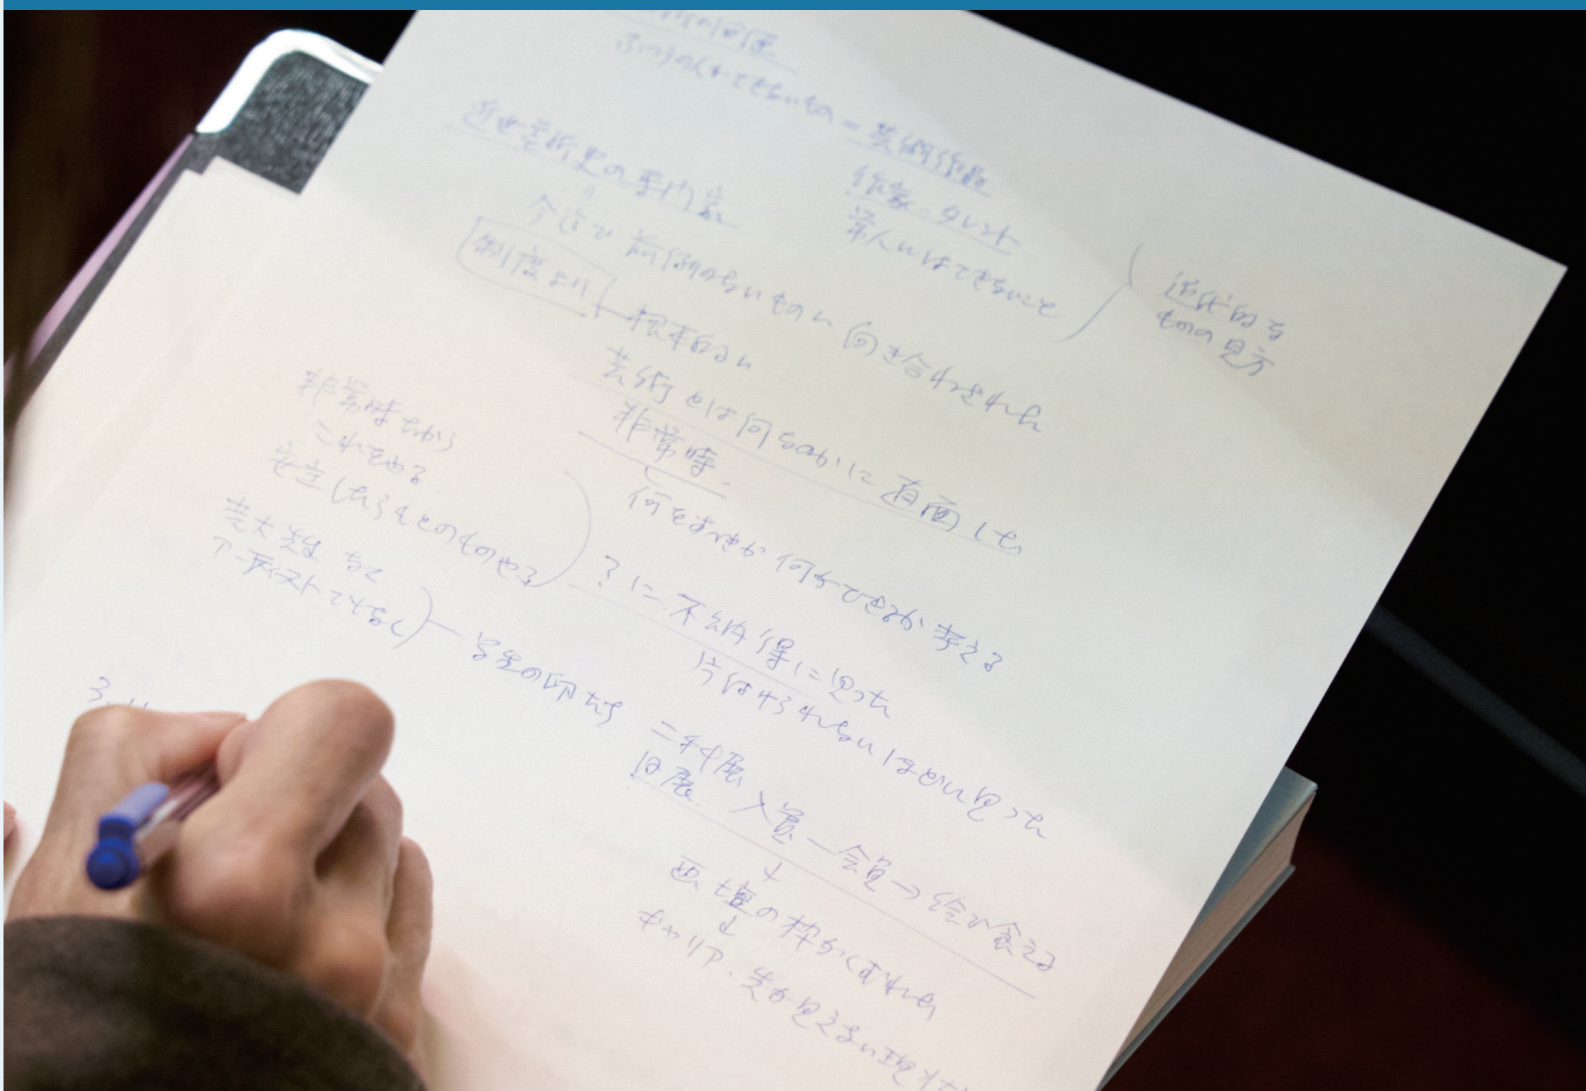 ふつうの人ができないもの = 芸術作品
作家・タレント
常人にはできないこと
近代的な
ものの見方
近世芸術史の専門家
今まで前例のないものに向き合わされた
制度より
根本的に
芸術とは何なのかに直面した
非常時
何をすべきか何ができるか考える
非常時だから
これでやる
安立したらもとのものやる
?に不納得に思った
片付けられないほどに思った
芸大生はなく
アーティストでもなく
学生の
二科展
日展
入賞 — 会員 → 絵で食える
↓
画壇の枠がくずれた
↓
キャリア、先が見えない